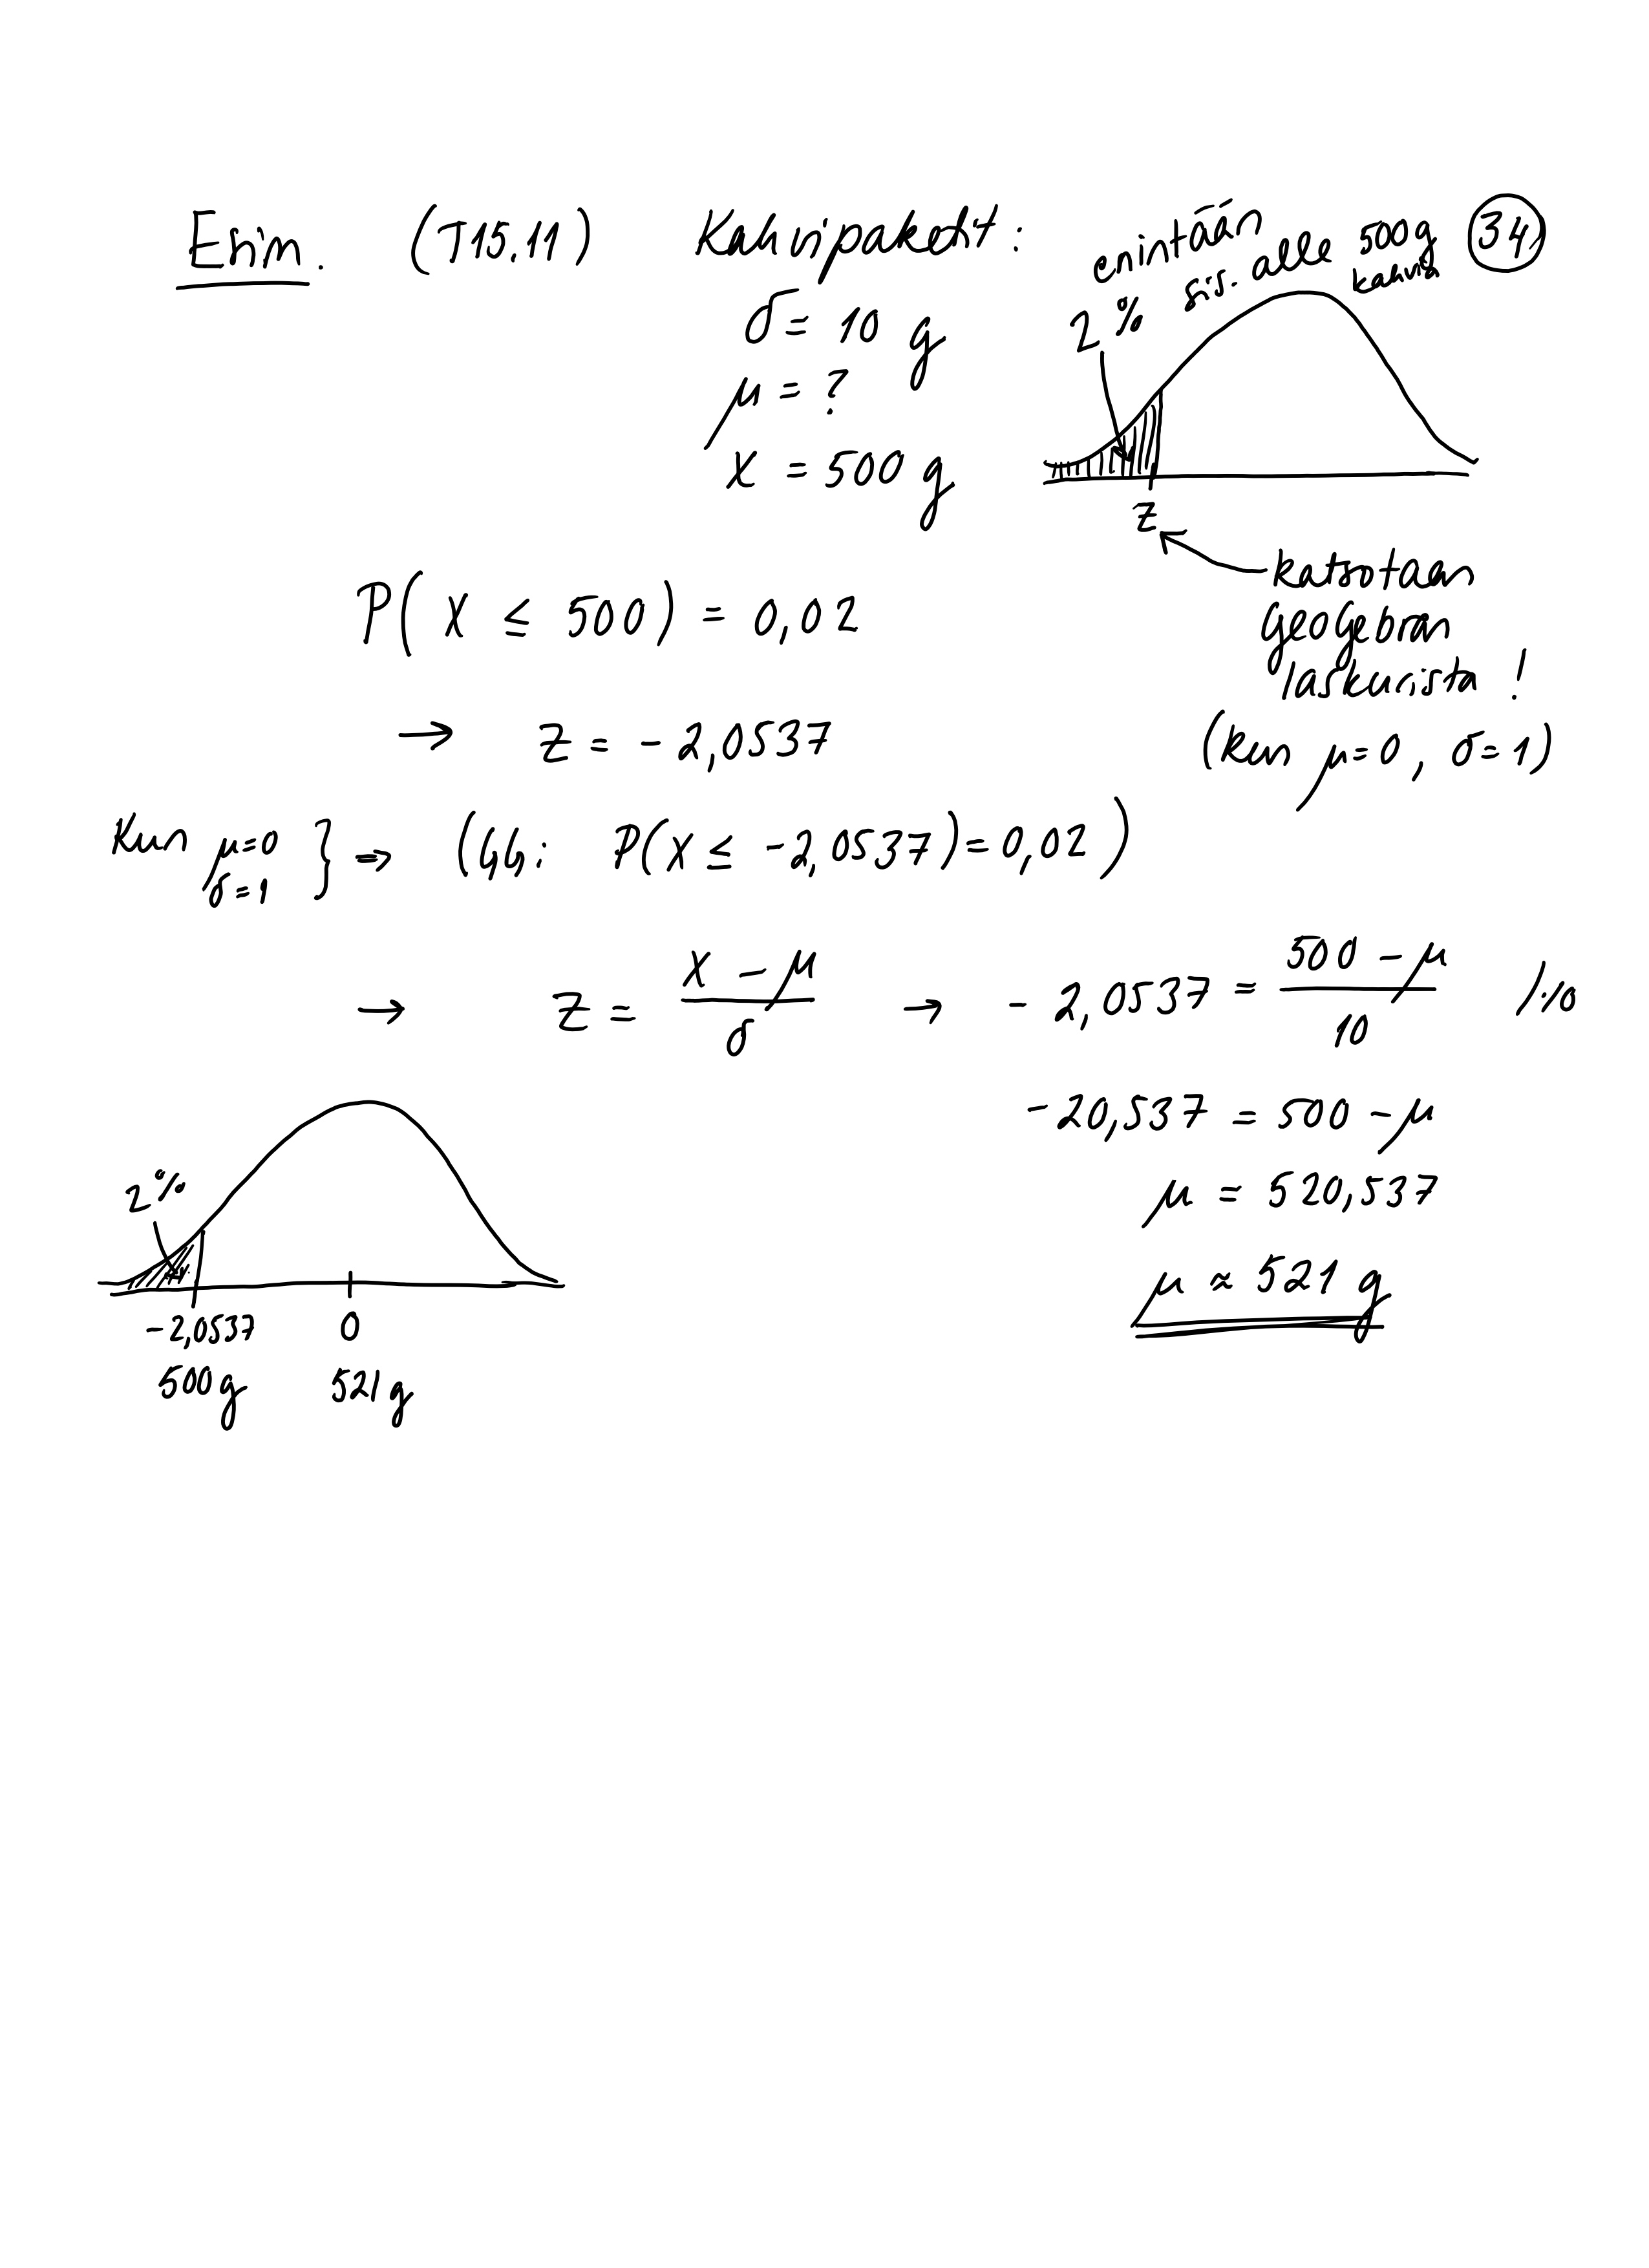 Esim. (T15.11) Kahvipaketit:
σ = 10 g
μ = ?
x = 500 g
enintään
2 % sis. alle 500g
kahvia
34
z
katsotaan
GeoGebran
laskurista !
(kun μ=0, σ=1)
P(X ≤ 500) = 0,02
→ z = -2,0537
Kun μ=0
σ=1 } ⇒ (GG: P(X ≤ -2,0537) = 0,02)
→ z = (x - μ)/σ → -2,0537 = (500 - μ)/10 /·10
-20,537 = 500 - μ
μ = 520,537
μ ≈ 521 g
2%
-2,0537 0
500g 521g